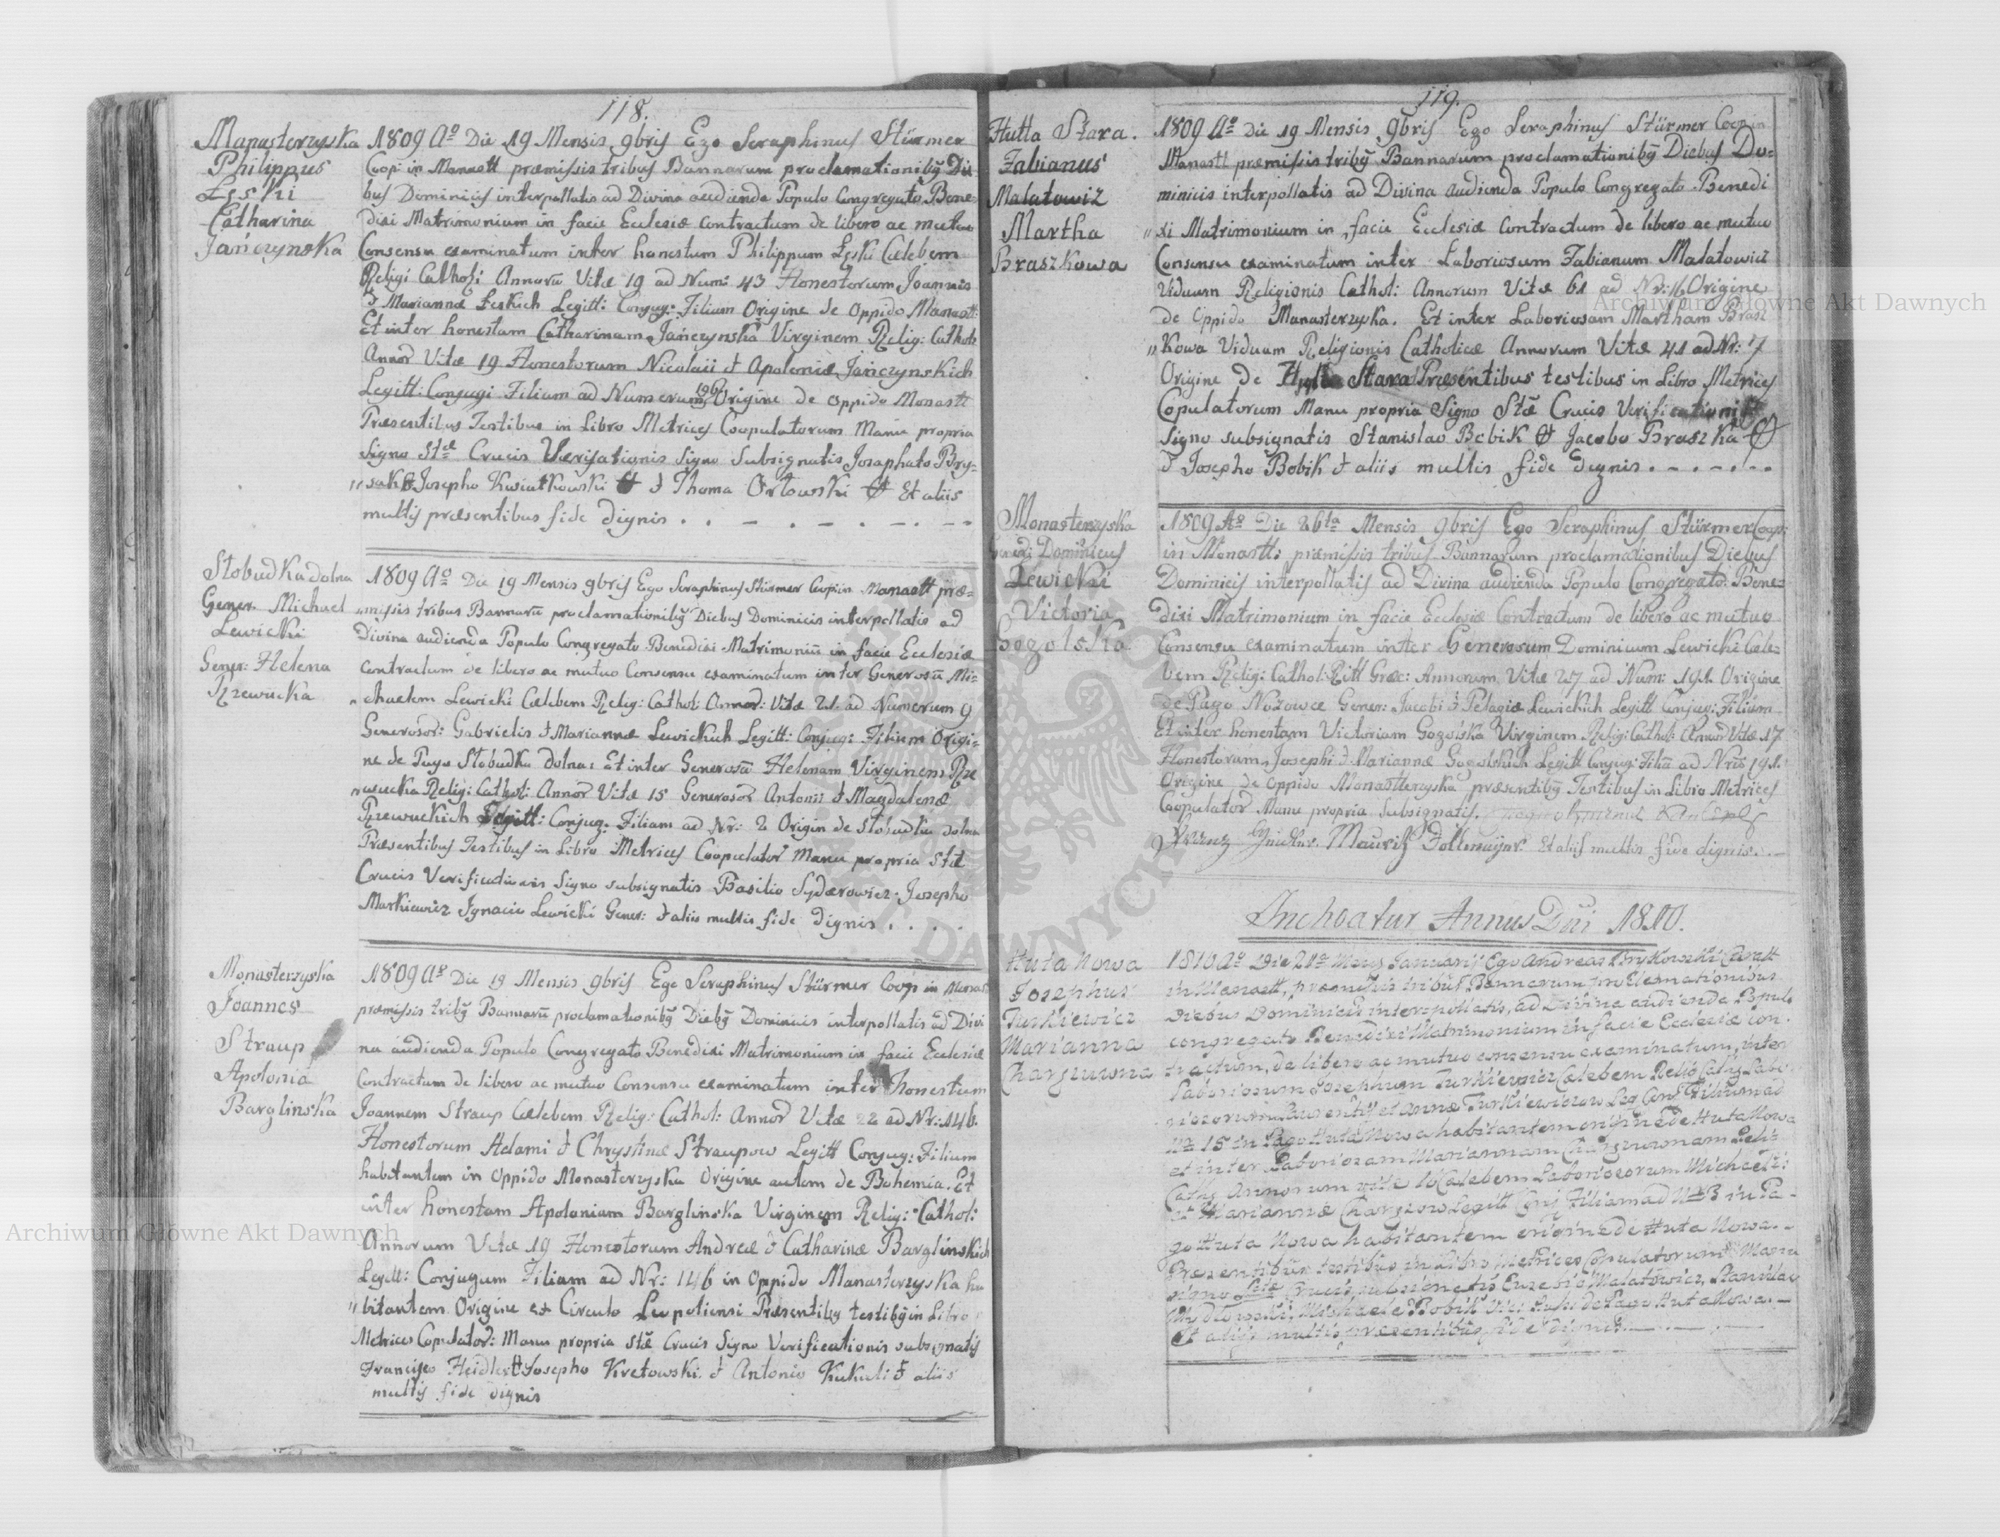 118.
Manasterzyska
Philippus
Łęski
Catharina
Jańczynska
1809 Aº Die 19 Mensis 9bris Ego Seraphinus Stürmer
Coop: in Manastt præmissis tribus Bannarum proclamationibȝ Die-
bus Dominicis interpollatis ad Divina audienda Populo Congregato Bene-
dixi Matrimonium in facie Ecclesiæ contractum de libero ac mutuo
Consensu examinatum inter honestum Philippum Łęski Cælebem
Religi Cathol: Annorū Vitæ 19 ad Num: 43 Honestorum Joannis
et Mariannæ Łeskich Legitt: Conjug: Filium Origine de Oppido Manastt:
Et inter honestam Catharinam Jańczynska Virginem Relig: Cathol:
Annor Vitæ 19 Honestorum Nicolaii et Apoloniæ Jańczynskich
Legitt: Conjugi Filiam ad Numerum Origine de Oppido Monastt
Præsentibus Testibus in Libro Metrices Coopulatorum Manu propria
Signo Stæ Crucis Verifationis Signo Subsignatis Josaphato Bry-
„ sak Josepho Kwiatkowski et Thoma Orłowski Et aliis
multis præsentibus fide dignis . . - . - . - . - -
Słobudka dolna
Gener. Michael
Lewicki
Gener: Helena
Rzewucka
1809 Aº Die 19 Mensis 9bris Ego Seraphinus Stürmer Coop in Manastt præ-
„missis tribus Bannarū proclamationibȝ Diebus Dominicis interpollatis ad
Divina audienda Populo Congregato Benedixi Matrimoniū in facie Ecclesiæ
contractum de libero ac mutuo Consensu examinatum inter Generosū Mi-
„ chaelem Lewicki Cælebem Relig: Cathol: Annor: Vitæ 21 ad Numerum 9
Generosor: Gabrielis et Mariannæ Lewickich Legitt: Conjug: Filium Origi-
ne de Pago Słobudka dolna: Et inter Generosā Helenam Virginem Rze
„wucka Relig: Cathol: Annor Vitæ 15 Generosor Antonii et Magdalenæ
Rzewuckich Legitt: Conjug: Filiam ad Nr: 2 Origin de Słobudka dolna
Præsentibus Testibus in Libro Metrices Coopulator Manu propria Stæ
Crucis Verificationis Signo subsignatis Basilio Syderowicz: Josepho
Markiewicz Ignacio Lewicki Gener: et aliis multis fide dignis . . . .
Monasterzyska
Joannes
Straup
Apolonia
Barglinska
1809 Aº Die 19 Mensis 9bris Ego Seraphinus Stürmer Coop in Monas
præmissis tribȝ Bannarū proclamationibȝ Diebȝ Dominicis interpollatis ad Divi
na audienda Populo Congregato Benedixi Matrimonium in facie Ecclesiæ
Contractum de libero ac mutuo Consensu examinatum inter Honestum
Joannem Straup Cælebem Relig: Cathol: Annor Vitæ 22 ad Nr: 146.
Honestorum Adami et Chrystinæ Straupow Legitt Conjug: Filium
habitantem in Oppido Monasterzyska Origine autem de Bohemia. Et
inter honestam Apoloniam Barglinska Virginem Relig: Cathol:
Annorum Vitæ 19 Honestorum Andreæ et Catharinæ Barglinskich
Legitt: Conjugum Filiam ad Nr: 146 in Oppido Manasterzyska ha
„bitantem Origine Circulo Leopoliensi Præsentibȝ testibȝ in Libro
Metrices Copulator: Manu propria Stæ Crucis Signo Verificationis subsignatis
Francisco Heidler Josepho Kretowski et Antonio Kukuli et aliis
multis fide dignis
119.
Hutta Stara.
Fabianus
Małatowiz
Martha
Braszkowa
1809 Aº Die 19 Mensis 9bris Ego Seraphinus Stürmer Coop in
Manastt præmissis tribȝ Bannarum proclamationibȝ Diebus Do-
minicis interpollatis ad Divina audienda Populo Congregato Benedi
„xi Matrimonium in facie Ecclesiæ Contractum de libero ac mutuo
Consensu examinatum inter Laboriosum Fabianum Małatowicz
Viduum Religionis Cathol: Annorum Vitæ 61 ad Nr: 16 Origine
de Oppido Manasterzyska. Et inter Laboriosam Martham Brasz
„Kowa Viduam Religionis Catholicæ Annorum Vitæ 41 ad Nr: 17
Origine de Hutta Stara Præsentibus testibus in Libro Metrices
Copulatorum Manu propria Signo Stæ Crucis Verificationis
Signo subsignatis Stanislao Bobik Jacobo Braszka
et Josepho Bobik et aliis multis fide dignis . - . - . . .
Monasterzyska
Gener: Dominicus
Lewicki
Victoria
Gogolska
1809 Aº Die 26ta Mensis 9bris Ego Seraphinus Stürmer Coop:
in Monastt: præmissis tribus Bannarum proclamationibus Diebus
Dominicis interpollatis ad Divina audienda Populo Congregato. Bene-
dixi Matrimonium in facie Ecclesiæ Contractum de libero ac mutuo
Consensu examinatum inter Generosum Dominicum Lewicki Cæle-
bem Relig: Cathol: Ritt Græc: Annorum Vitæ 27 ad Num: 191. Origine
de Pago Nozowce Gener: Jacobi et Pelagiæ Lewickich Legitt Conjug: Filium
Et inter honestam Victoriam Gogolska Virginem Relig: Cathol: Annor Vitæ 17
Honestorum Josephi et Mariannæ Gogolskich Legitt Conjug: Filiā ad Nrū 191.
Origine de Oppido Monastterzyska præsentibȝ Testibus in Libro Metrices
Coopulator Manu propria Subsignatis.
Mauritz Et aliis multis fide dignis. . -
Inchoatur Annus Dni 1810.
Huta Nowa
Josephus
Turkiewicz
Marianna
Chargzuwna
1810 Aº Die 21ª Mens Januarii Ego Andreas
in Manastt, præmissis tribus Bannarum proclamationibus
Diebus Dominicis interpollatis, ad Divina audienda Populo
congregato Benedixi Matrimonium in facie Ecclesiæ con-
tractum, de libero ac mutuo consensu examinatum, inter
Laboriosum Josephum Turkiewicz Cælebem Relig Cath Labo-
riosorum Laurentii et Annæ Turkiewiczow Leg Conj Filium ad
Nr 15 in Pago Huta Nowa habitantem origine de Huta Nowa
et inter Laboriosam Mariannam Relig
Cath Annorum vitæ Cælebem Laboriosorum Michaelis
et Mariannæ Legitt Conj Filiam ad Nr 3 in Pa-
go Huta Nowa habitantem origine de Huta Nowa.
Præsentibus testibus in Libro Metrices Copulatorum Manu
signo Stæ Crucis, subsignatis Małatowicz, Stanislao
Michaele Bobik de Pago Huta Nowa
Et aliis multis præsentibus fide dignis.
Archiwum Główne Akt Dawnych
Archiwum Główne Akt Dawnych